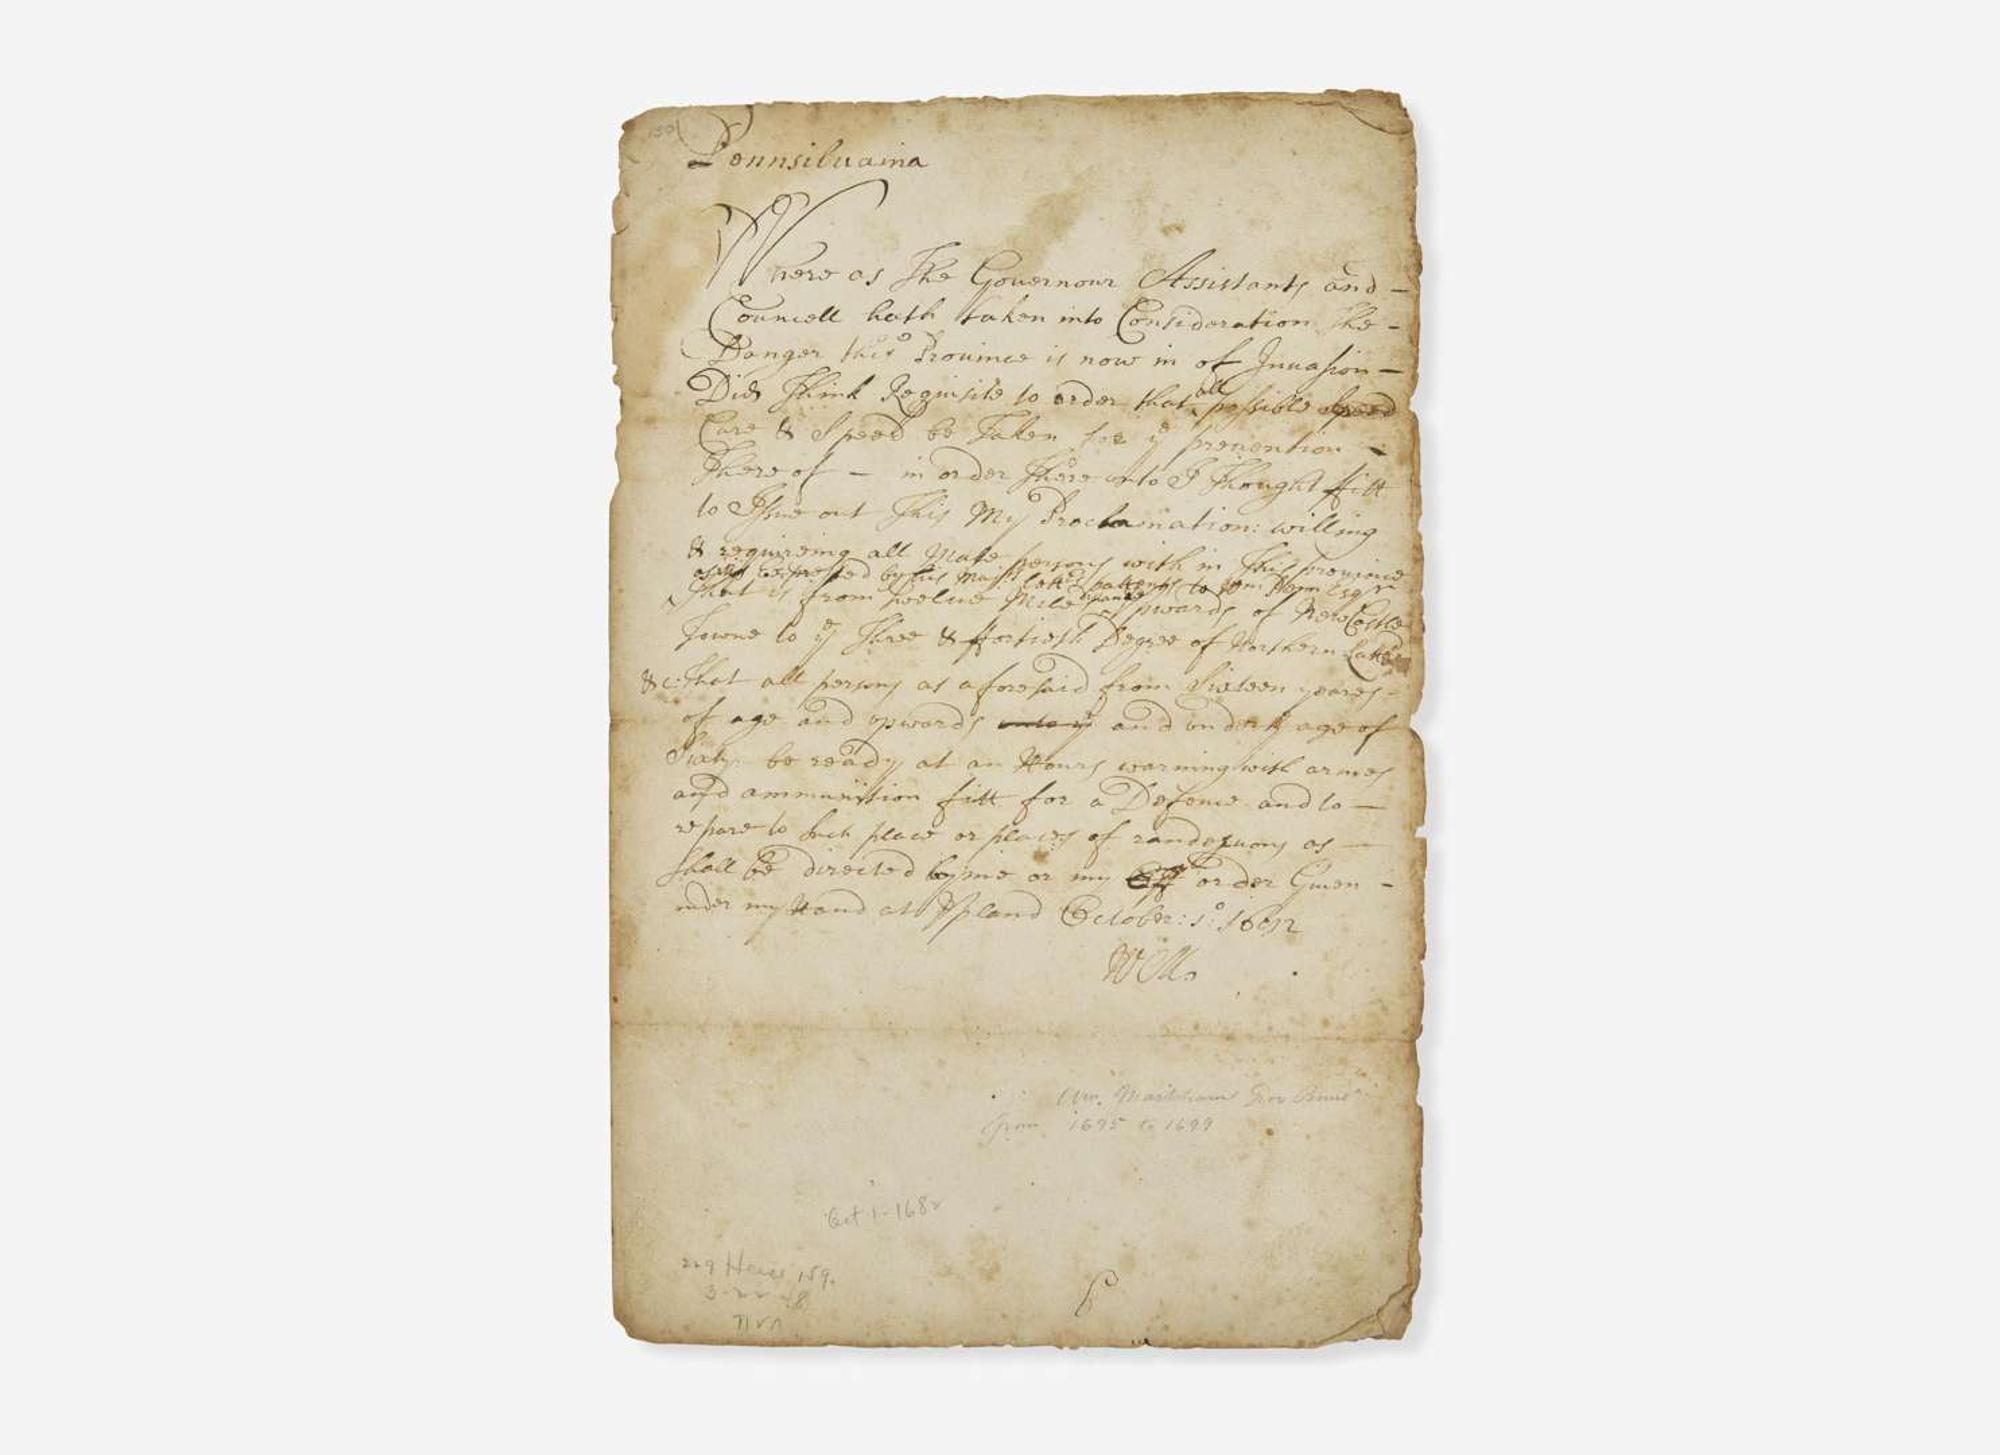 Pennsiluania
Where as The Governour Assistants and
Councell hath taken into Consideration The
Danger this Prouince is now in of Inuasion
Did Think Requisite to order that all possible Speed
Care & Speed be Taken for ye preuention
There of — in order There unto I Thought fitt
to Issue out This My Proclamation: willing
& requireing all Male persons with in This prouince
as is expressed by his Majts letters pattents to Wm Penn Esqr
That is from twelue Mile upwards of New Castle
Towne to ye Three & ffortieth Degree of Northern Lattd
&c: That all persons as aforesaid from Sixteen yeares
of age and upwards unto ye and under ye age of
Sixty be ready at an Hours warning with armes
and ammunition fitt for a Defence and to
repare to such place or places of randezuous as
shall be directed by me or my order Giuen
under my Hand at Upland October: 1o: 1682
WM
Wm. Markham Gov Penns
from 1695 to 1699
Oct 1-1682
3-22-48